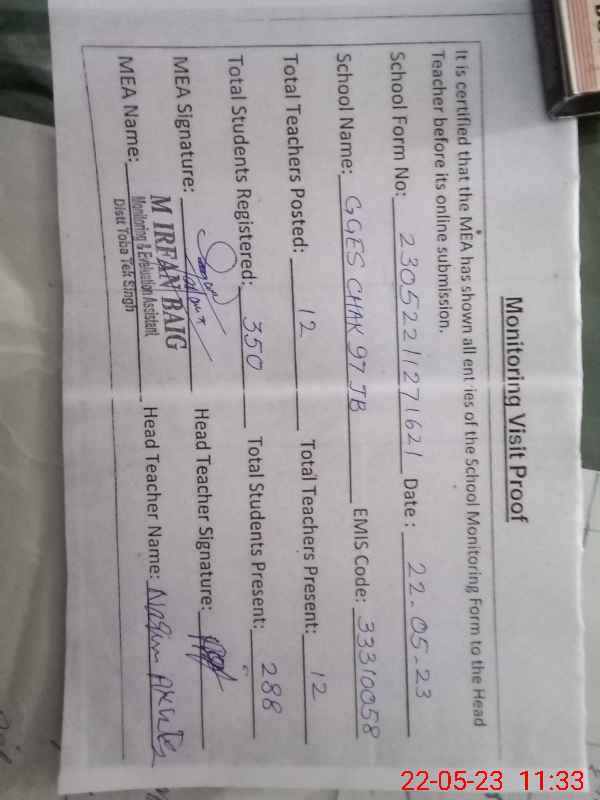 Monitoring Visit Proof
It is certified that the MEA has shown all entries of the School Monitoring Form to the Head
Teacher before its online submission.
School Form No: 23052211271621 Date : 22.05-23
School Name: GGES CHAK 97 JB EMIS Code: 33310058
Total Teachers Posted: 12 Total Teachers Present: 12
Total Students Registered: 350 Total Students Present: 288
MEA Signature: Head Teacher Signature:
M IRFAN BAIG
Monitoring & Evaluation Assistant
Distt Toba Tek Singh
MEA Name: Head Teacher Name: Nasim Akhter
22-05-23 11:33